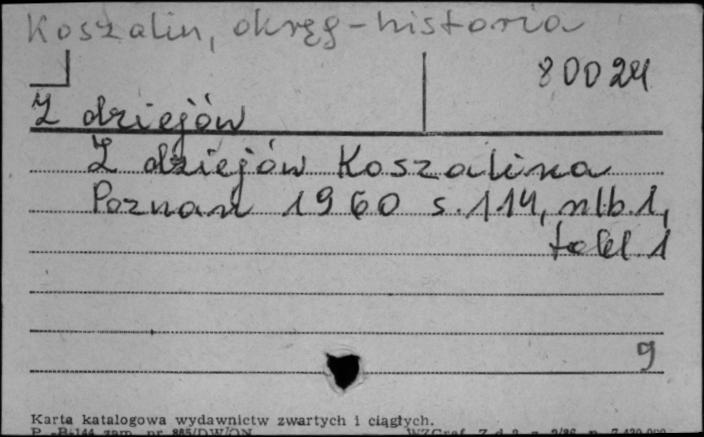 Koszalin, okręg - historia
80024
Z dziejów
Z dziejów Koszalina
Poznań 1960 s. 114, nlb. 1,
tabl. 1
9
Karta katalogowa wydawnictw zwartych i ciągłych.
zam. nr 885/DW/ON